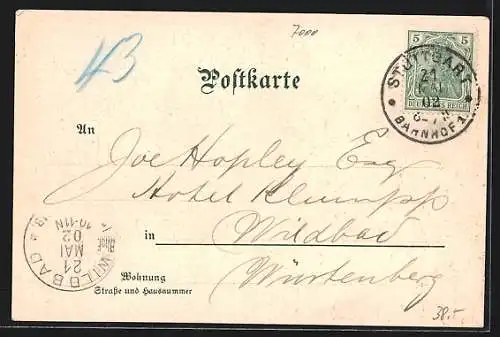 7000
43
5 5
DEUTSCHES REICH
STUTTGART
21
MAI
02
BAHNHOF 1.
Postkarte
An
Joe Hopley Esq
Hotel Klumpp
in Wildbad
Würtenberg
WILDBAD
21
MAI
02
10-11N
Wohnung
Straße und Hausnummer
38.-